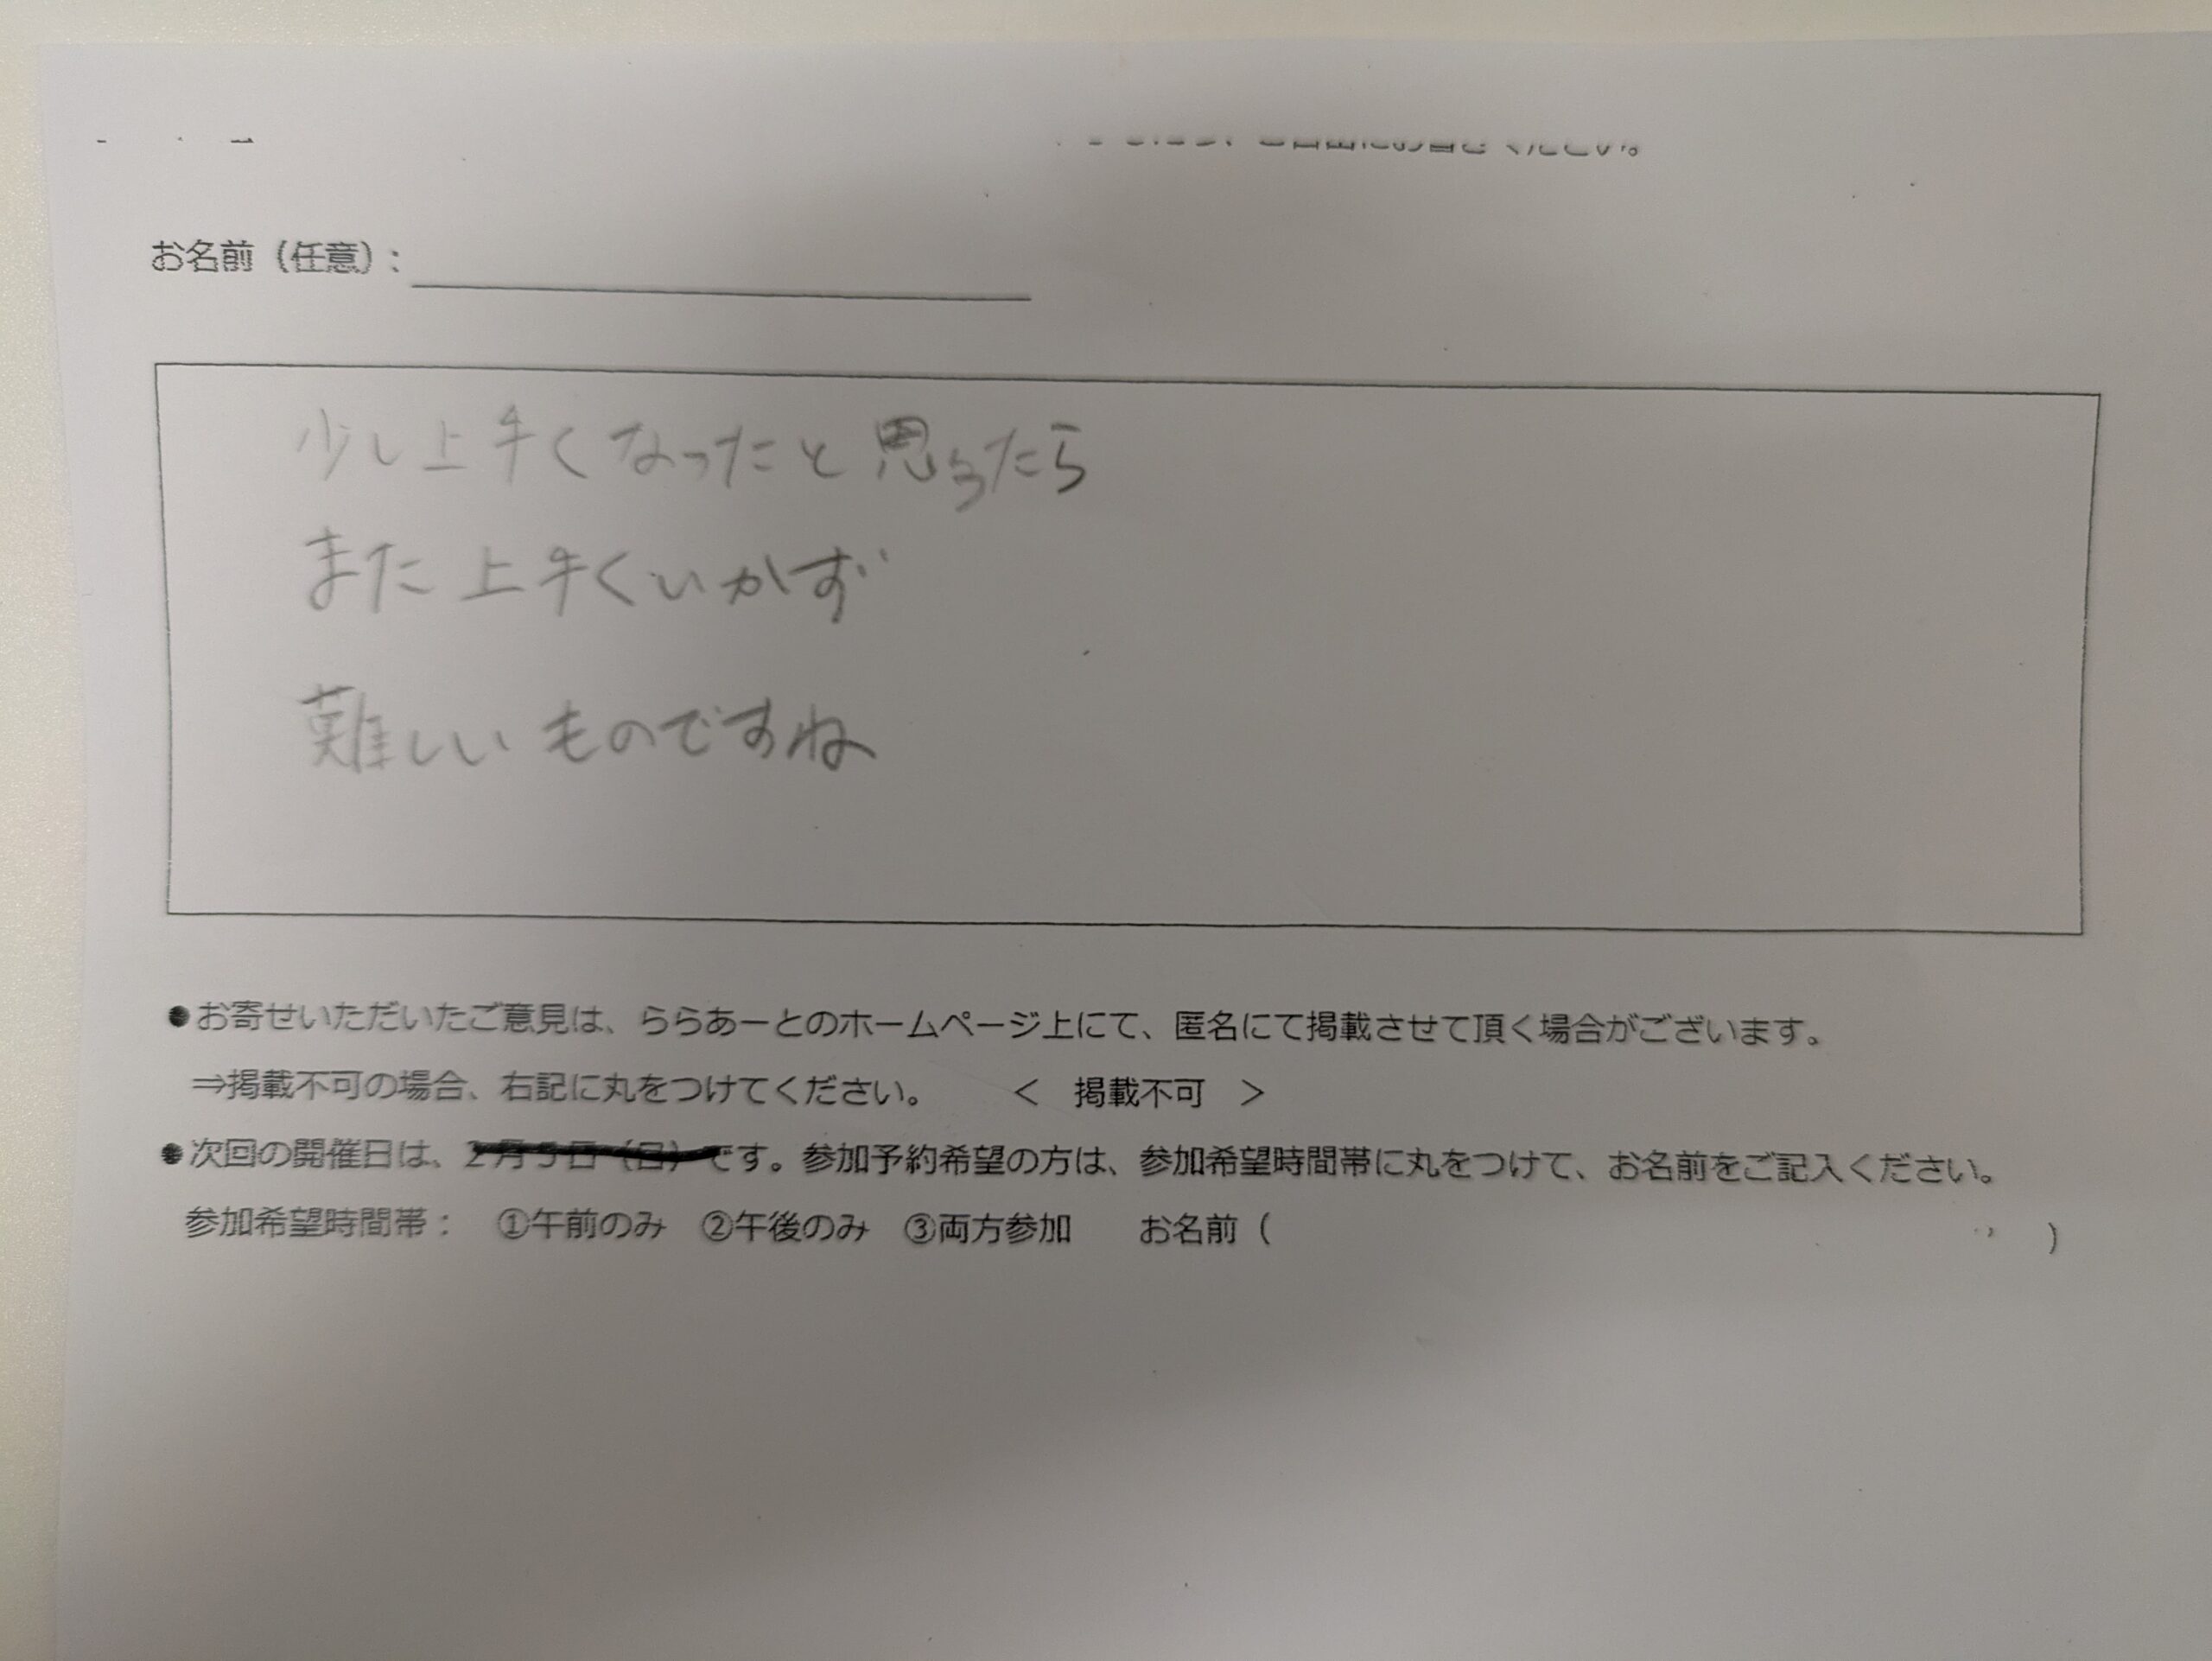 お名前（任意）：
少し上手くなったと思ったら
また上手くいかず
難しいものですね
●お寄せいただいたご意見は、ららあーとのホームページ上にて、匿名にて掲載させて頂く場合がございます。
⇒掲載不可の場合、右記に丸をつけてください。 ＜ 掲載不可 ＞
●次回の開催日は、2月5日（日）です。参加予約希望の方は、参加希望時間帯に丸をつけて、お名前をご記入ください。
参加希望時間帯： ①午前のみ ②午後のみ ③両方参加 お名前（ ）